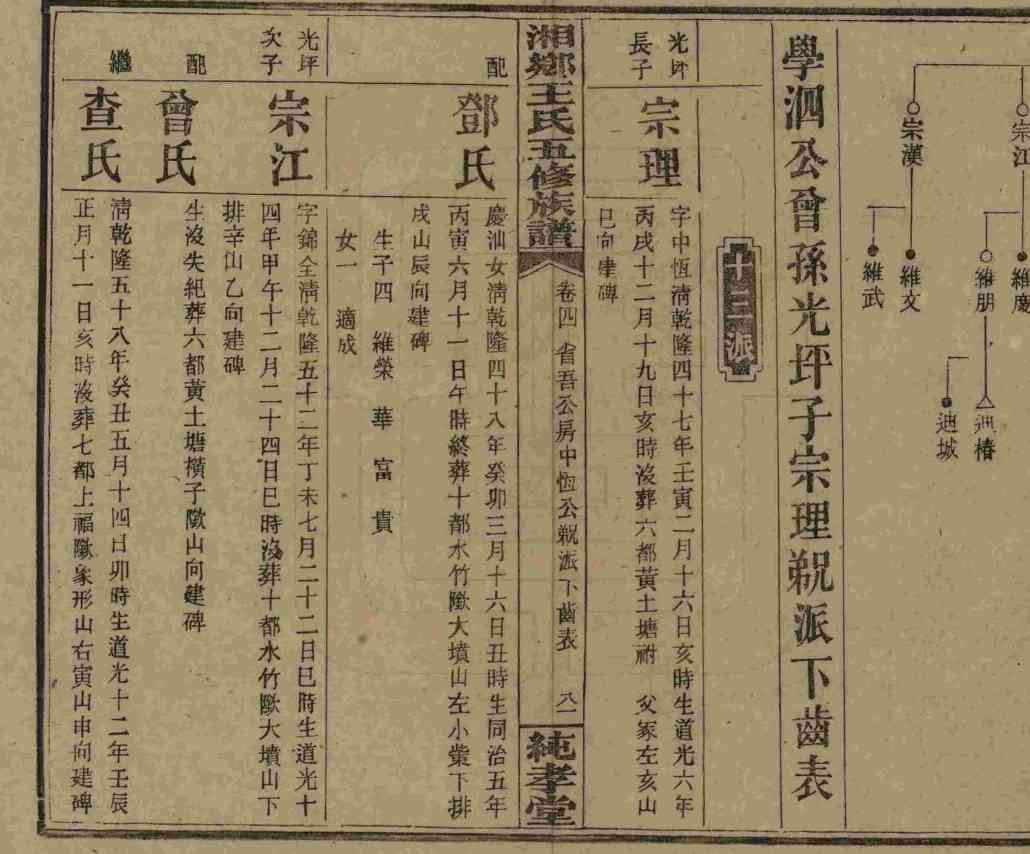 宗江
維慶
維朋
迪椿
迪城
宗漢
維文
維武
學泗公曾孫光坪子宗理派下齒表
十三派
光坪
長子
宗理
字中恆淸乾隆四十七年壬寅二月十六日亥時生道光六年
丙戌十二月十九日亥時沒葬六都黃土塘祔 父冢左亥山
巳向建碑
湘鄉王氏五修族譜
卷四 省吾公房中恆公派下齒表 八一
純孝堂
配
鄧氏
慶汕女淸乾隆四十八年癸卯三月十六日丑時生同治五年
丙寅六月十一日午時終葬十都水竹墺大墳山左小柴下排
戌山辰向建碑
生子四 維榮 華 富 貴
女一 適成
光坪
次子
宗江
字錦全淸乾隆五十二年丁未七月二十二日巳時生道光十
四年甲午十二月二十四日巳時沒葬十都水竹墺大墳山下
排辛山乙向建碑
配
曾氏
生沒失紀葬六都黃土塘橫子墺山向建碑
繼
查氏
淸乾隆五十八年癸丑五月十四日卯時生道光十二年壬辰
正月十一日亥時沒葬七都上福墺象形山右寅山申向建碑